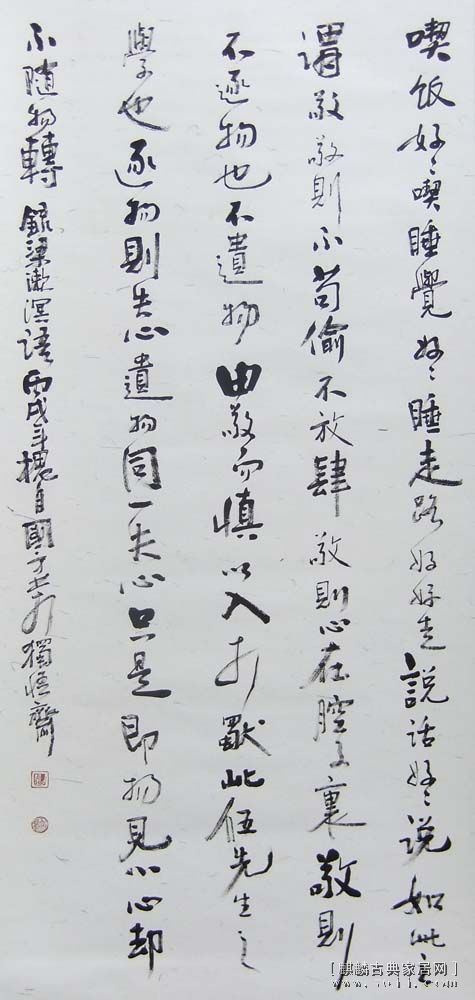 喫饭好〻喫睡覺好〻睡走路好好走説话好〻说如此之
謂敬敬則不苟偷不放肆敬則心在腔子裏敬則
不逐物也不遺物由敬而慎以入於獸此伍先生之
學也逐物則失心遺物同一失心只是即物見心心却
不随物轉錄梁漱溟语丙戌年槐月國士於獨悟齋
[麒麟古典家居网]